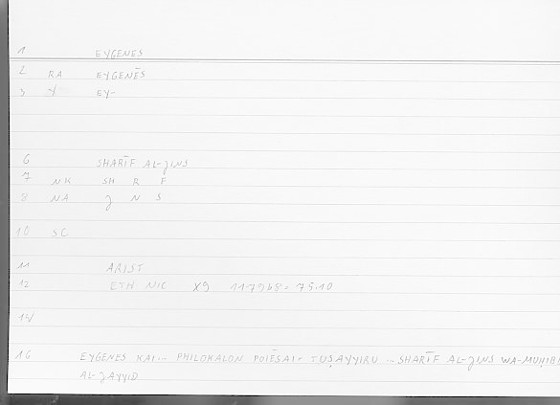 1 EYGENES
2 RA EYGENĒS
3 Y EY-
6 SHARĪF AL-JINS
7 NK SH R F
8 NA J N S
10 SC
11 ARIST
12 ETH NIC X9
14
16 EYGENES KAI -- PHILOKALON POIĒSAI = TUṢAYYIRU -- SHARĪF AL-JINS WA-MUḤIBB
AL-JAYYID